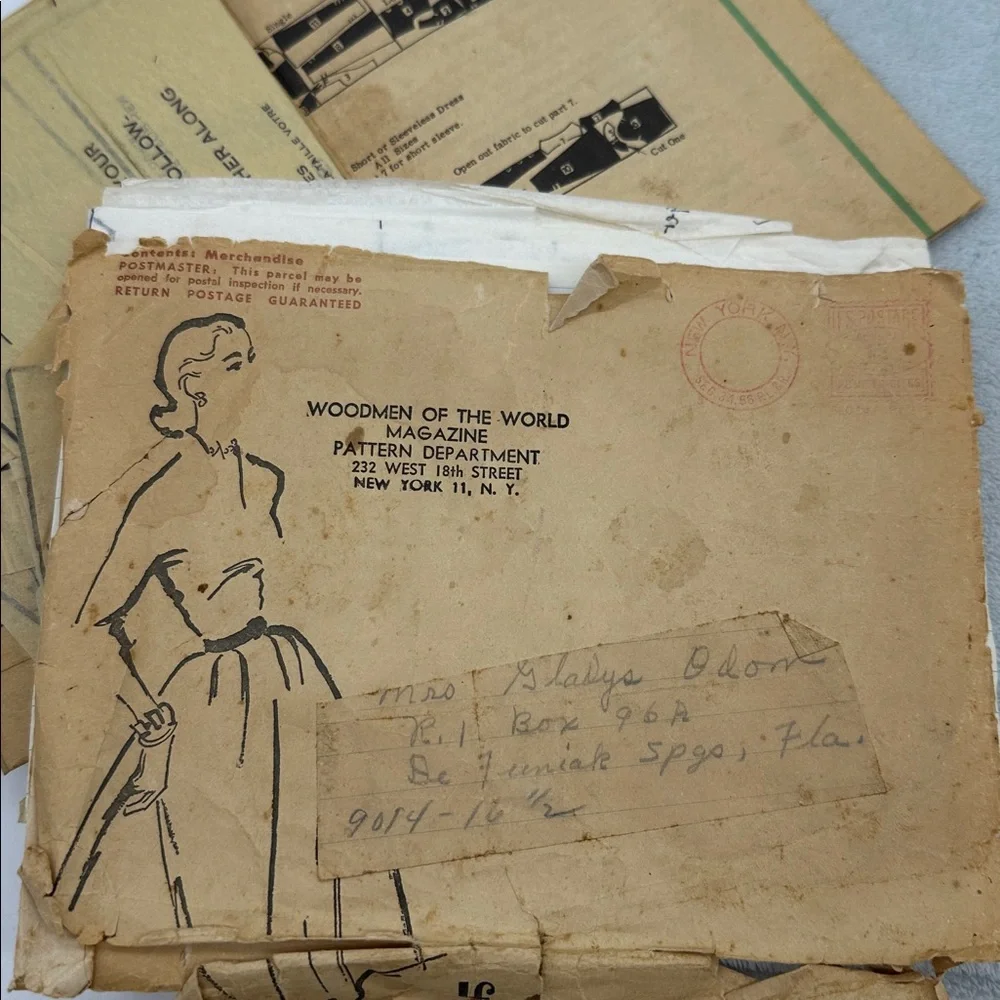 Single
Short or Sleeveless Dress
All Sizes
7 for short sleeve.
Open out fabric to cut part 7.
Cut One
HER ALONG
OLLOW-
YOUR
TAILLE VOTRE
Contents: Merchandise
POSTMASTER: This parcel may be
opened for postal inspection if necessary.
RETURN POSTAGE GUARANTEED
NEW YORK, N.Y.
U.S. POSTAGE
WOODMEN OF THE WORLD
MAGAZINE
PATTERN DEPARTMENT
232 WEST 18th STREET
NEW YORK 11, N. Y.
Mrs Gladys Odom
R. 1 Box 96A
De Funiak Spgs, Fla.
9014-16 1/2
If